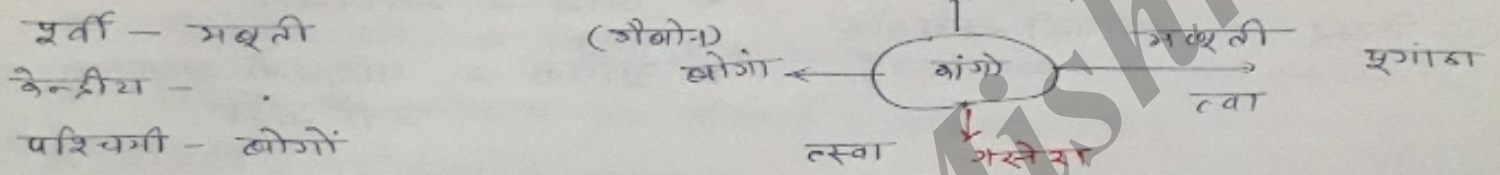 पूर्वी - मबूती
केन्द्रीय -
पश्चिमी - बोंगों
(गैबोन)
बोंगों
कांगो
मबूती
त्वा
युगांडा
त्स्वा
गसेरा